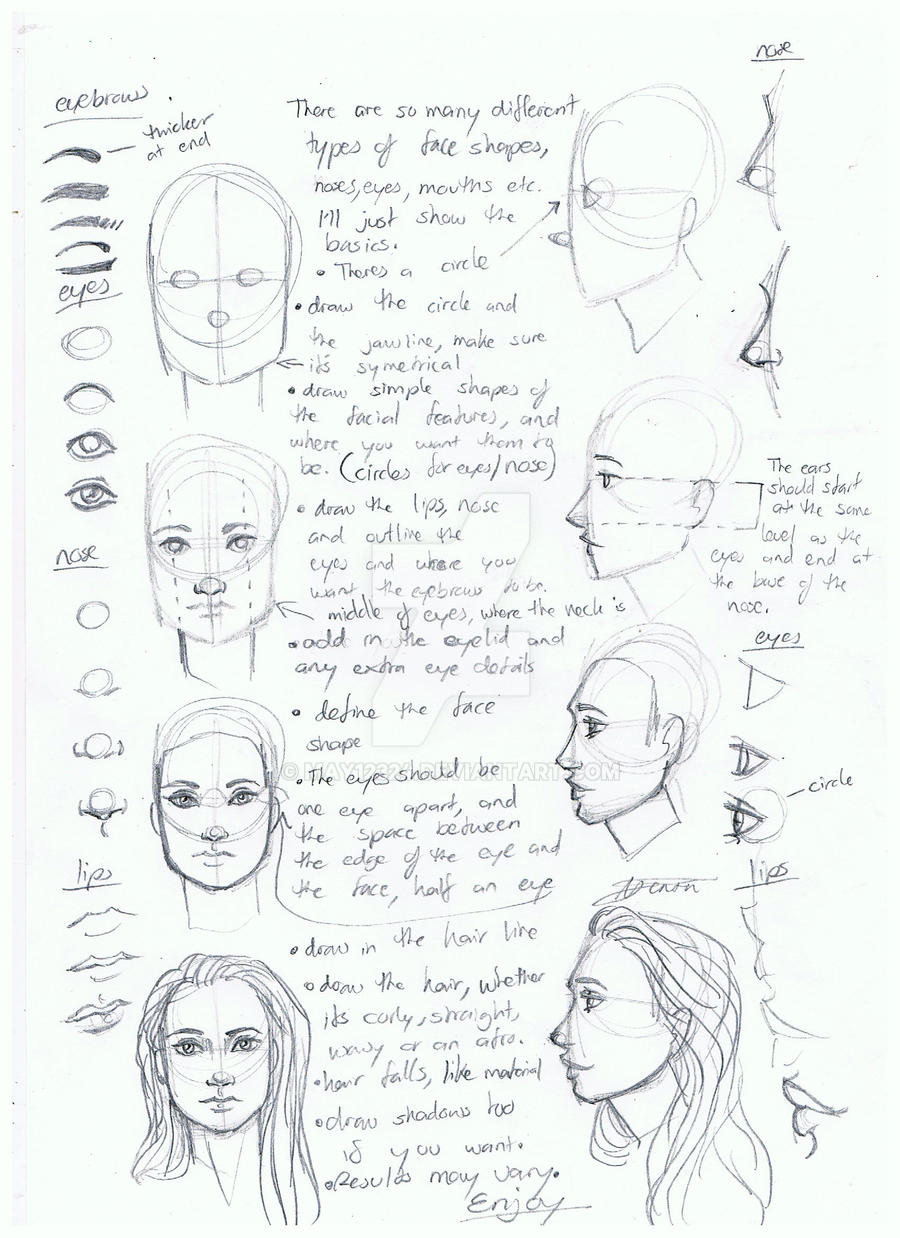 eyebrows
thicker
at end
eyes
nose
lips
There are so many different
types of face shapes,
noses, eyes, mouths etc.
I'll just show the
basics.
• Theres a circle
• draw the circle and
the jawline, make sure
it's symetrical
• draw simple shapes of
the facial features, and
where you want them to
be. (circles for eyes/nose)
• draw the lips, nose
and outline the
eyes and where you
want the eyebrows to be.
middle of eyes, where the neck is
• add in the eyelid and
any extra eye details
• define the face
shape
• The eyes should be
one eye apart, and
the space between
the edge of the eye and
the face, half an eye
• draw in the hair line
• draw the hair, whether
its curly, straight,
wavy or an afro.
• hair falls, like material
• draw shadows too
if you want.
• Results may vary.
Enjoy
nose
The ears
should start
at the same
level as the
eyes and end at
the base of the
nose.
eyes
circle
lips
© MAY12324.DEVIANTART.COM